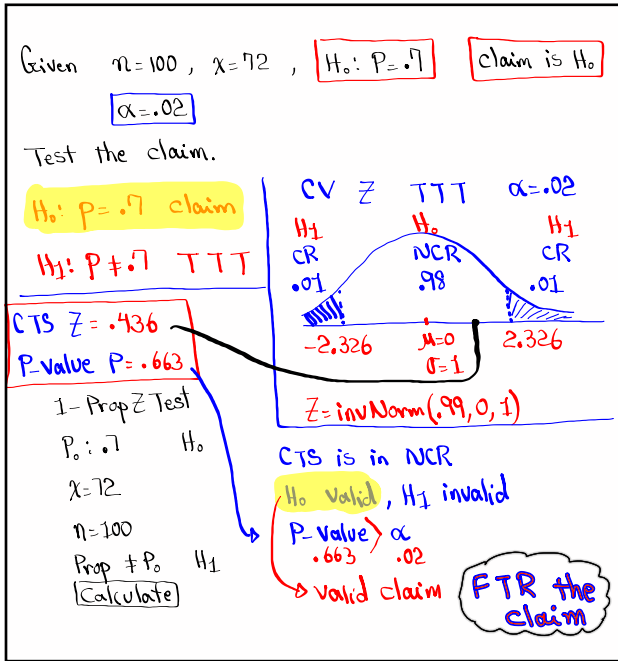 Given n=100, x=72, H₀: P=.7 claim is H₀
α=.02
Test the claim.
H₀: P=.7 claim
H1: P≠.7 TTT
CTS Z=.436
P-value P=.663
1-PropZTest
P₀: .7 H₀
x=72
n=100
Prop ≠P₀ H1
Calculate
CV Z TTT α=.02
H1 H₀ H1
CR NCR CR
.01 .98 .01
-2.326 μ=0 2.326
σ=1
Z=invNorm(.99,0,1)
CTS is in NCR
H₀ valid, H1 invalid
P-value > α
.663 .02
valid claim
FTR the
claim